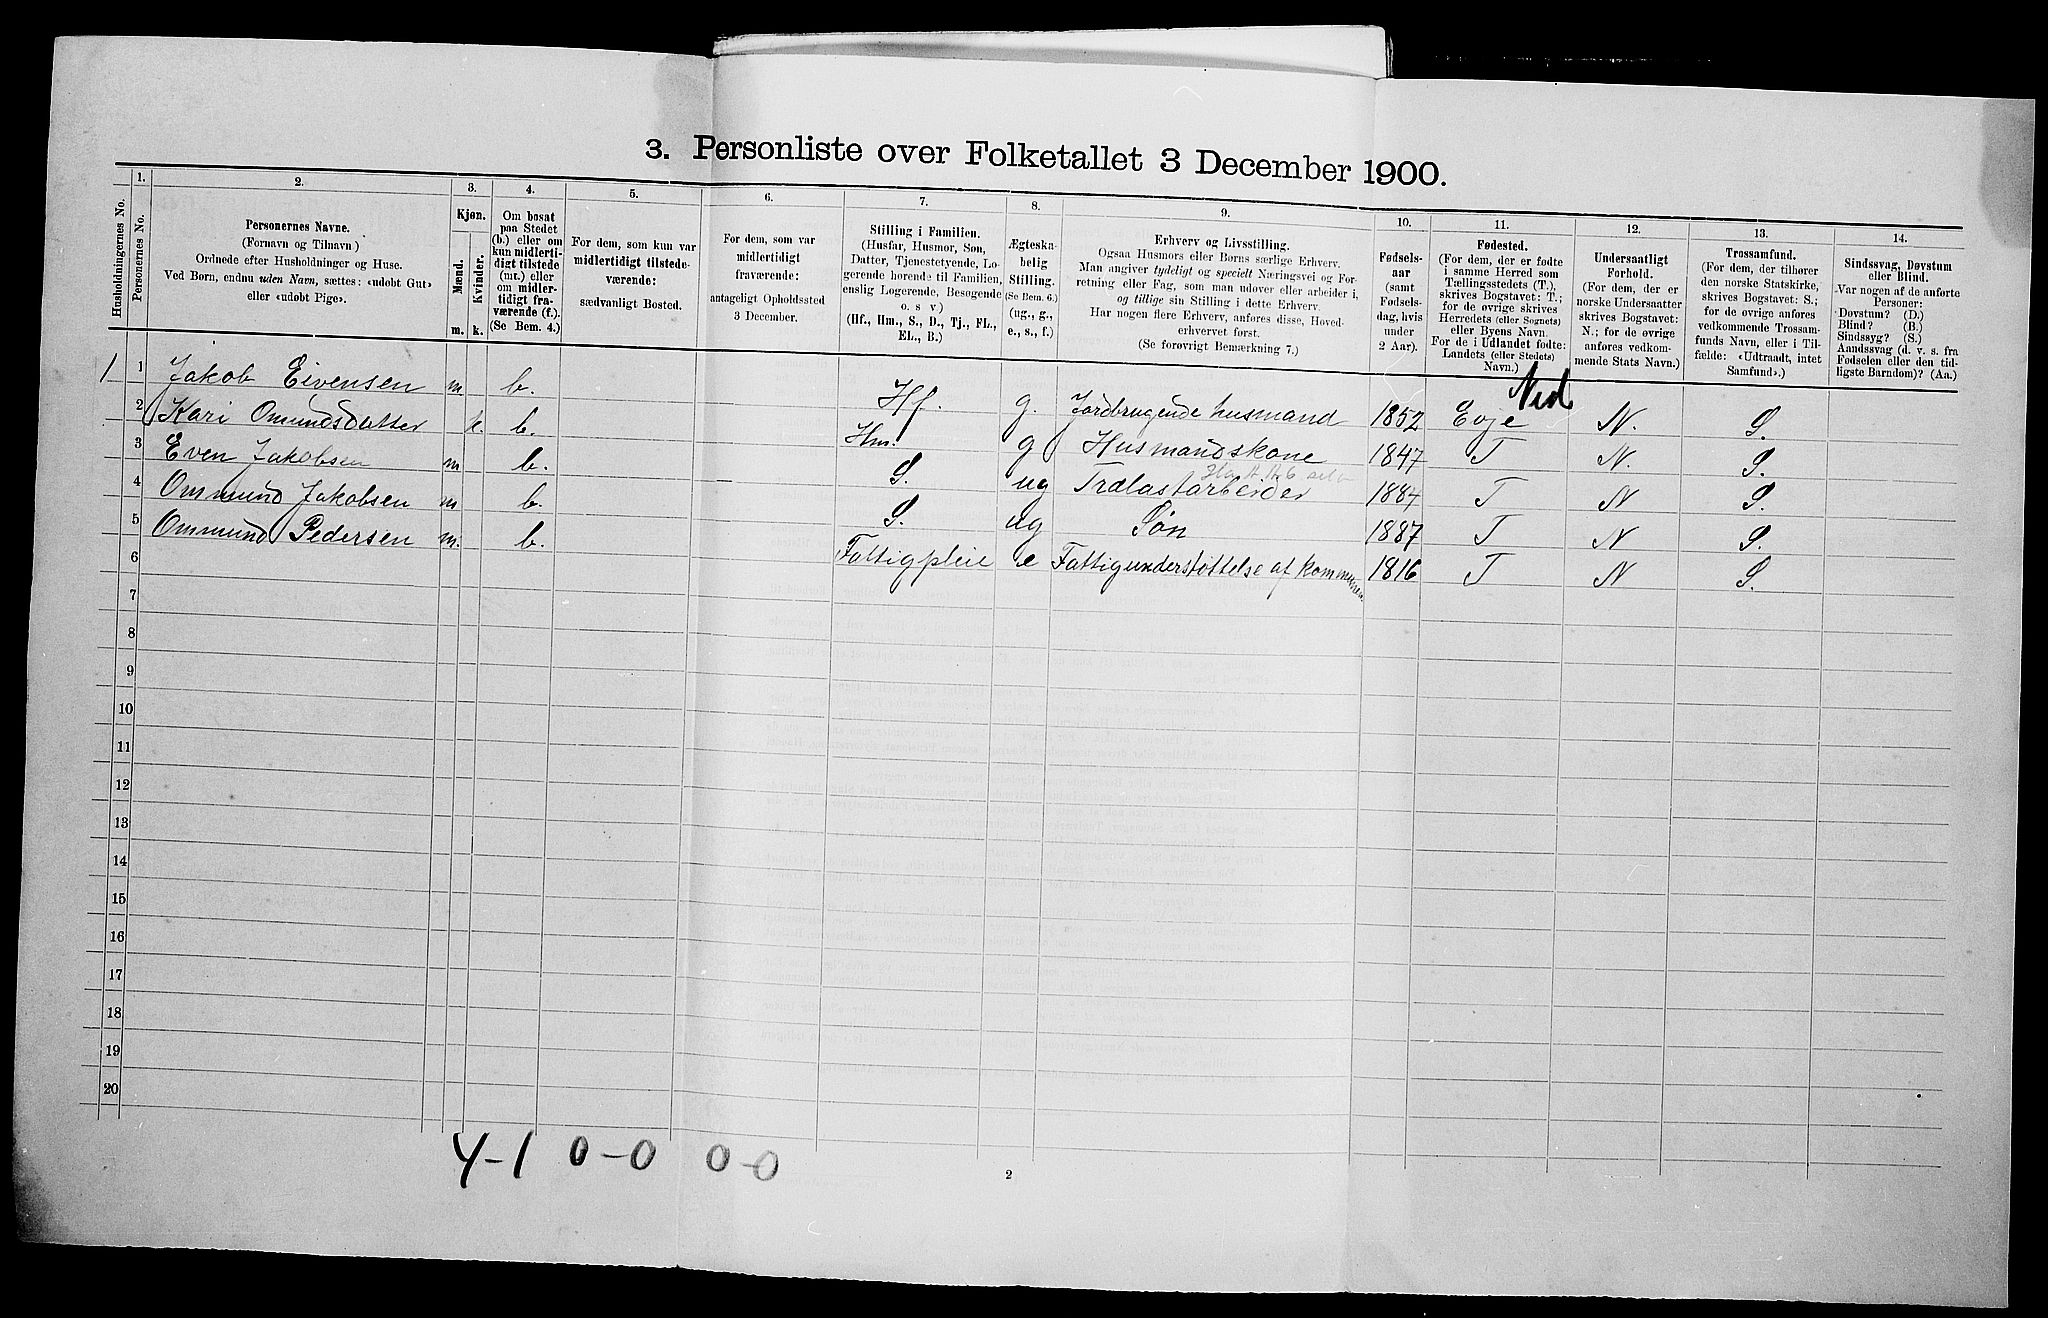 3. Personliste over Folketallet 3 December 1900.
Husholdningernes No.
1.
Personernes No.
2.
Personernes Navne.
(Fornavn og Tilnavn)
Ordnede efter Husholdninger og Huse.
Ved Børn, endnu uden Navn, sættes: «udøbt Gut»
eller «udøbt Pige».
3.
Kjøn.
Mænd.
Kvinder.
m.
k.
4.
Om bosat
paa Stedet
(b.) eller om
kun midlerti-
digt tilstede
(mt.) eller
om midler-
tidigt fra-
værende (f.).
(Se Bem. 4.)
5.
For dem, som kun var
midlertidigt tilstede-
værende:
sædvanligt Bosted.
6.
For dem, som var
midlertidigt
fraværende:
antageligt Opholdssted
3 December.
7.
Stilling i Familien.
(Husfar, Husmor, Søn,
Datter, Tjenestetyende, Lo-
gerende hørende til Familien,
enslig Logerende, Besøgende
o. s. v.)
(Hf., Hm., S., D., Tj., FL.,
EL., B.)
8.
Ægteska-
belig
Stilling.
(Se Bem. 6.)
(ug., g.,
e., s., f.)
9.
Erhverv og Livsstilling.
Ogsaa Husmors eller Børns særlige Erhverv.
Man angiver tydeligt og specielt Næringsvei og For-
retning eller Fag, som man udøver eller arbeider i,
og tillige sin Stilling i dette Erhverv.
Har nogen flere Erhverv, anføres disse, Hoved-
erhvervet først.
(Se forøvrigt Bemærkning 7.)
10.
Fødsels-
aar
(samt
Fødsels-
dag, hvis
under
2 Aar).
11.
Fødested.
(For dem, der er fødte
i samme Herred som
Tællingsstedets (T.),
skrives Bogstavet: T.;
for de øvrige skrives
Herredets (eller Sognets)
eller Byens Navn.
For de i Udlandet fødte:
Landets (eller Stedets)
Navn.)
12.
Undersaatligt
Forhold.
(For dem, der er
norske Undersaatter
skrives Bogstavet:
N.; for de øvrige
anføres vedkom-
mende Stats Navn.)
13.
Trossamfund.
(For dem, der tilhører
den norske Statskirke,
skrives Bogstavet: S.;
for de øvrige anføres
vedkommende Trossam-
funds Navn, eller i Til-
fælde: «Udtraadt, intet
Samfund».)
14.
Sindssvag, Døvstum
eller Blind.
Var nogen af de anførte
Personer:
Døvstum? (D.)
Blind? (B.)
Sindssyg? (S.)
Aandssvag (d. v. s. fra
Fødselen eller den tid-
ligste Barndom)? (Aa.)
1 1 Jakob Eivensen m b. Hf. g. Jordbrugende husmand 1852 Evje Ned N. S.
2 Kari Omundsdatter k. b. Hm. g Husmandskone 1847 T N. S.
3 Even Jakobsen m b. S. ug Trælastarbeider 1884 T N S
4 Ommund Jakobsen m b. S. ug Søn 1887 T N S.
5 Ommund Pedersen m. b. Fattigpleie e Fattigunderstøttelse af kommunen 1816 T N S
6
7
8
9
10
11
12
13
14
15
16
17
18
19
20
4-1 0-0 0-0
2